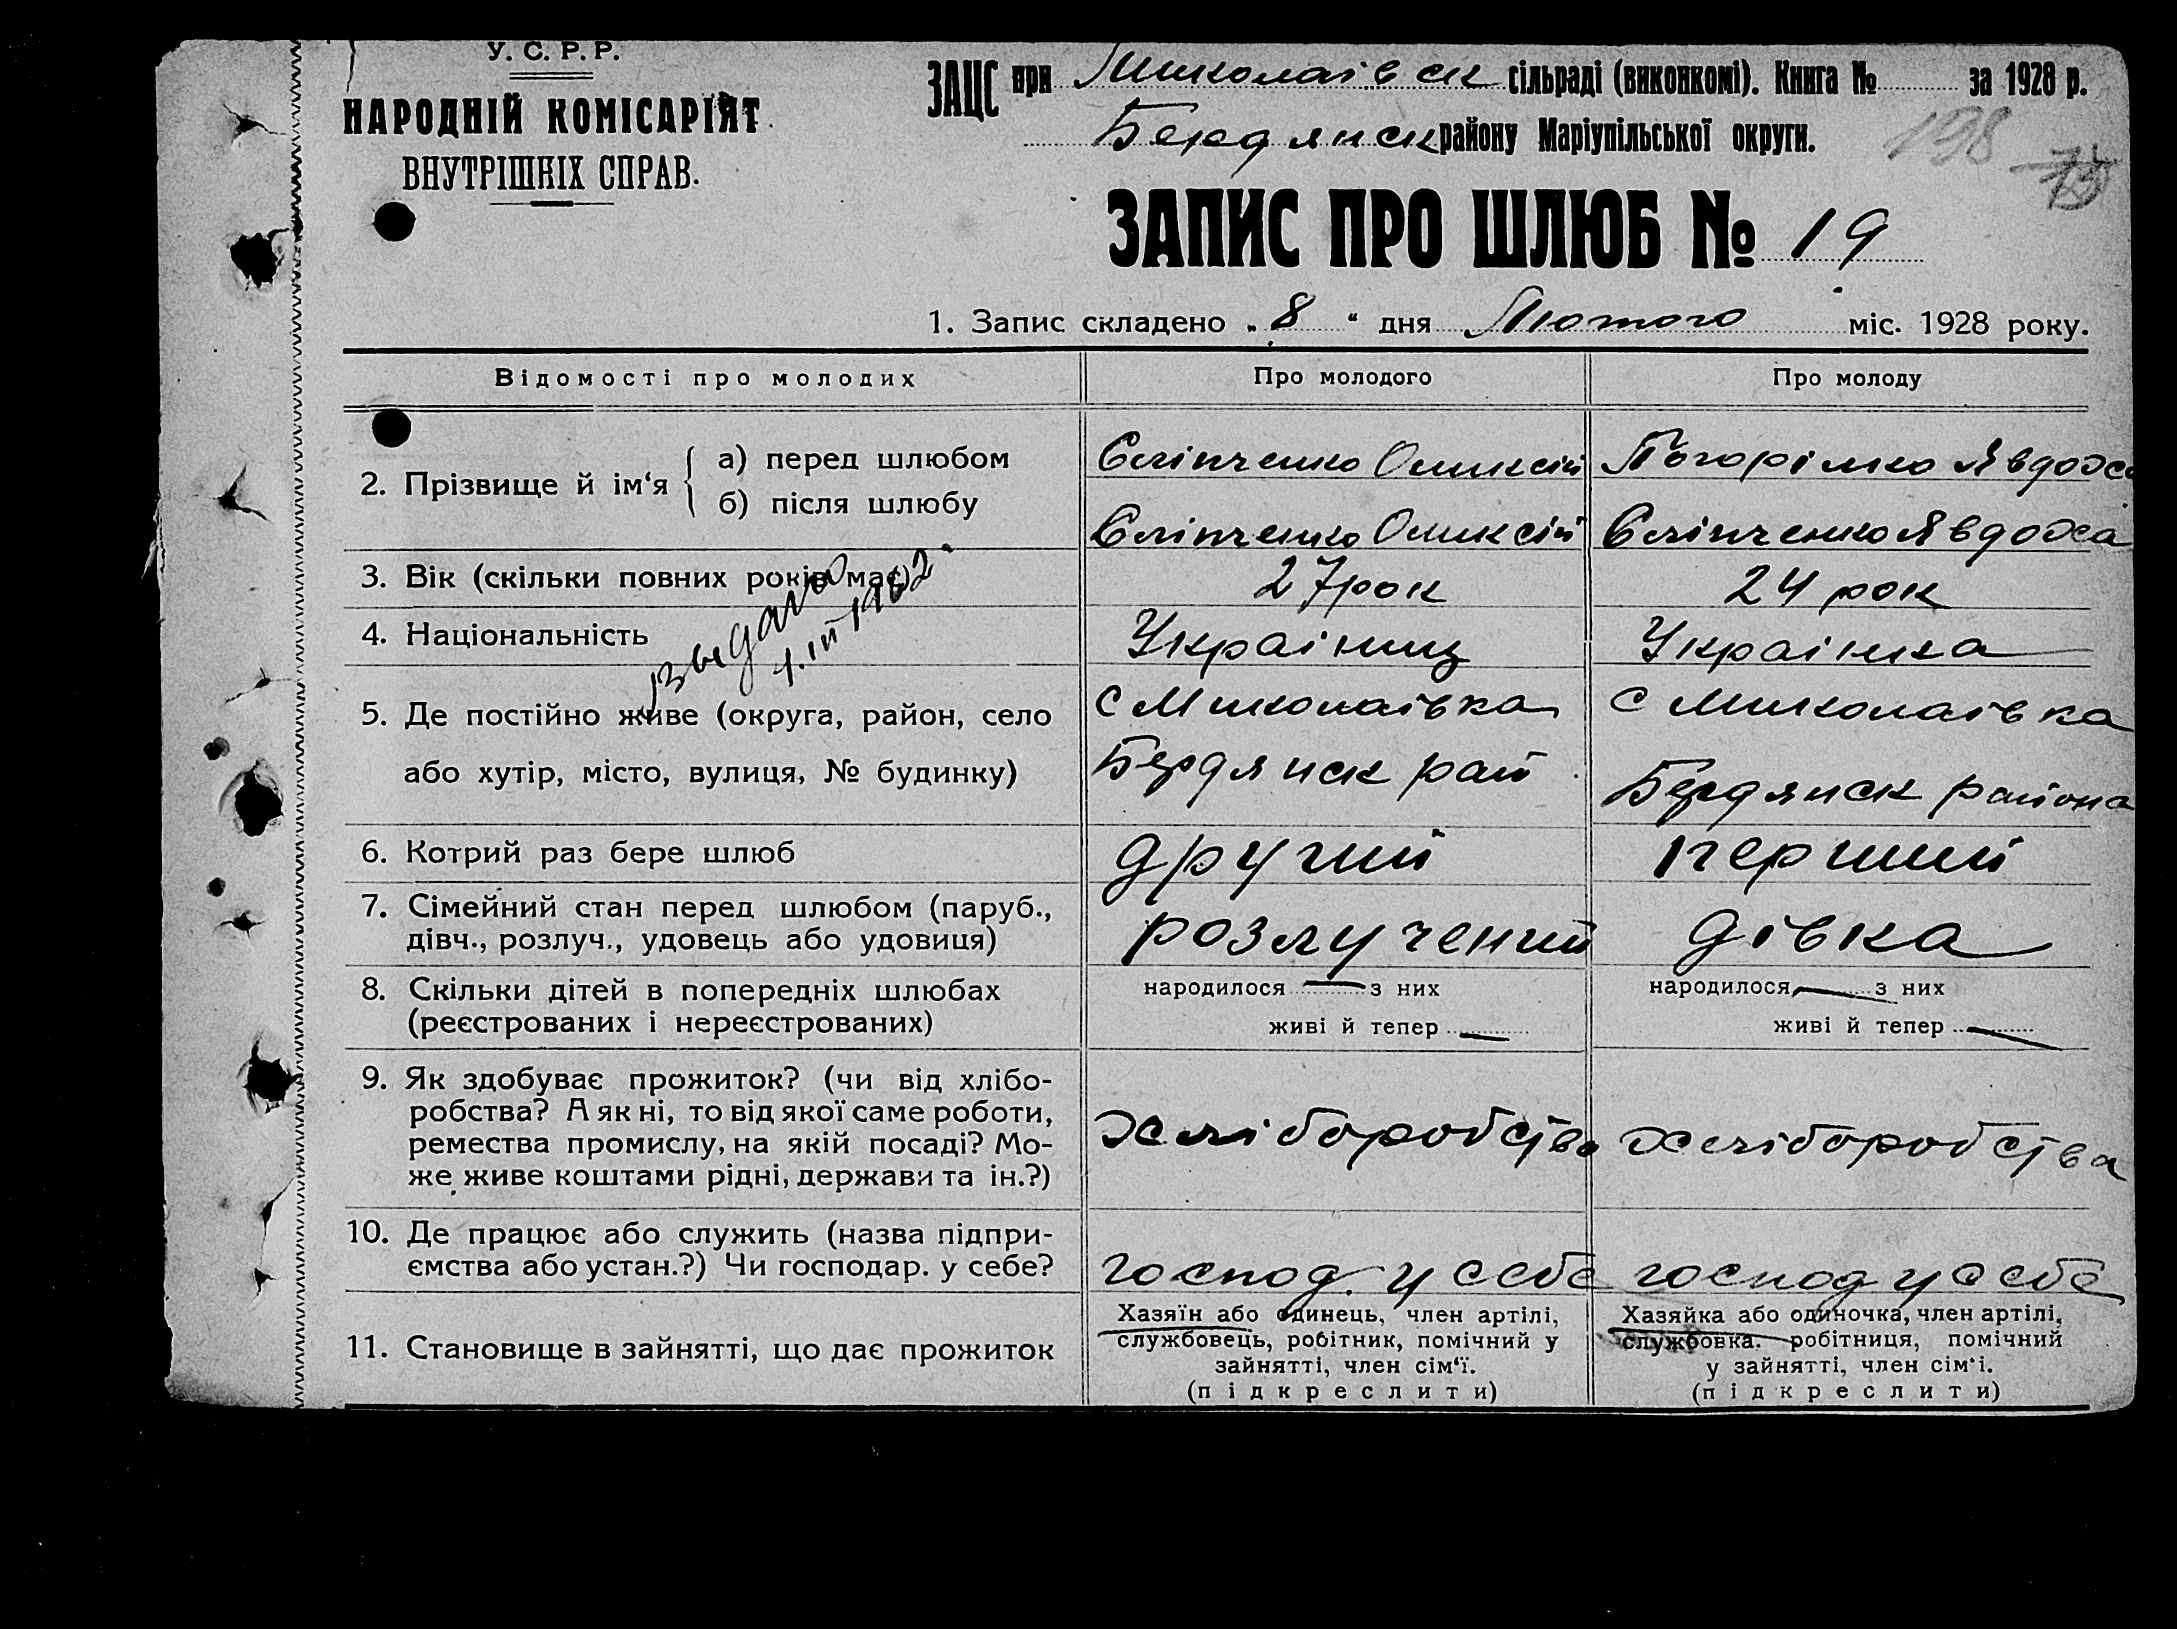 У. С. Р. Р.
НАРОДНІЙ КОМІСАРІЯТ
ВНУТРІШНІХ СПРАВ.
ЗАЦС при Миколаівск сільраді (виконкомі). Книга № за 1928 р.
Бердянск району Маріупільської округи.
198
ЗАПИС ПРО ШЛЮБ № 19
1. Запис складено „ 8 “ дня Лютого міс. 1928 року.
Відомості про молодих
Про молодого
Про молоду
2. Прізвище й ім‘я { а) перед шлюбом
б) після шлюбу
Сліпченко Оликсій
Погорілко Явдоха
Сліпченко Оликсій
Сліпченко Явдоха
3. Вік (скільки повних років має)
27 рок
24 рок
4. Національність
Украіниц
Украінка
5. Де постійно живе (округа, район, село
або хутір, місто, вулиця, № будинку)
с Миколаівка
Бердянск рай
с Миколаівка
Бердянск района
6. Котрий раз бере шлюб
другий
перший
7. Сімейний стан перед шлюбом (паруб.,
дівч., розлуч., удовець або удовиця)
розлучений
дівка
8. Скільки дітей в попередніх шлюбах
(реєстрованих і нереєстрованих)
народилося з них
живі й тепер
народилося з них
живі й тепер
9. Як здобуває прожиток? (чи від хлібо-
робства? А як ні, то від якої саме роботи,
ремества промислу, на якій посаді? Мо-
же живе коштами рідні, держави та ін.?)
хліборобства
хліборобства
10. Де працює або служить (назва підпри-
ємства або устан.?) Чи господар. у себе?
господ. у себе
господ у себе
11. Становище в зайнятті, що дає прожиток
Хазяїн або одинець, член артілі,
службовець, робітник, помічний у
зайнятті, член сім‘ї.
(підкреслити)
Хазяйка або одиночка, член артілі,
службовка. робітниця, помічний
у зайнятті, член сім‘і.
(підкреслити)